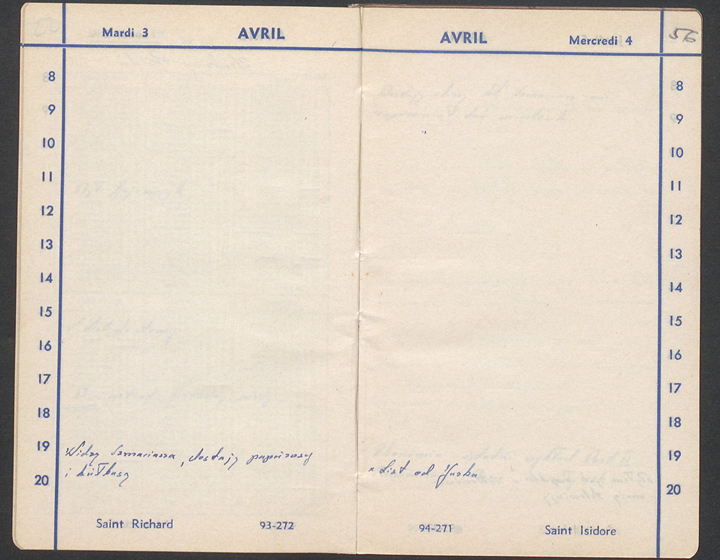 Mardi 3 AVRIL
8
9
10
11
12
13
14
15
16
17
18
19
20
Widzę dostaję papierosy
i
Saint Richard 93-272
AVRIL Mercredi 4 56
8
9
10
11
12
13
14
15
16
17
18
19
20
List od Jurka
94-271 Saint Isidore